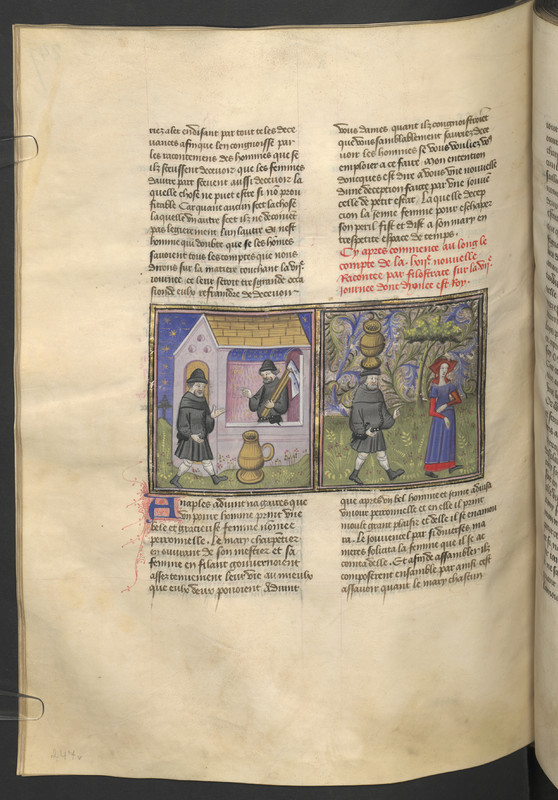 riez aler en disant par tout telles dece
uances afin que len congnoisse par
les racontemens des hommes que se
ilz scaiuent deceuoir que les femmes
daultre part sceuent aussi deceuoir la
quelle chose ne puet estre si non prou
fitable Car quant aucun scet la chose
laquelle vn autre scet il ne deçoiuent
pas legierement lun lautre Qui est
homme qui doubte que se les hommes
sauoient tous les comptes que nous
dirons sur la matiere touchant la vije
iournee ce leur seroit tresgrande occa
sion de eulx refraindre de deceuoir
vous dames quant ilz congnoistroiet
que vous samblablement sauriez dece
uoir les hommes se vous vouliez vo9
employer a ce faire Mon entention
doncques est dire a vous vne nouuelle
dune deception faicte par vne ieune
celle de petit estat La quelle decep
cion la ieune femme pour eschaper
son peril fist et dist a son mary en
trespetite espace de temps
Cy apres commence au long le
compte de la ije nouuelle
Racontee par filostrate sur la vije
iournee dont dyonee est Roy
A naples aduint na gaires que
vn poure homme print vne
bele et gracieuse femme nomee
peronnelle Le mary charpentier
en suiuant de son mestier et sa
femme en filant gouuernoient
assez teniement leur vie au mieulx
que eulx deux pouoient Aduint
que apres vn bel homme et ieune aduisa
vn iour peronnelle et en elle il print
moult grant plaisir et delle il se enamou
ra Le iouuencel par si diuerses ma
nieres solicita la femme que il se ac
cointa delle Et afin de assambler ilz
composerent ensamble par ainsi cest
assauoir quant le mary chascun
247v